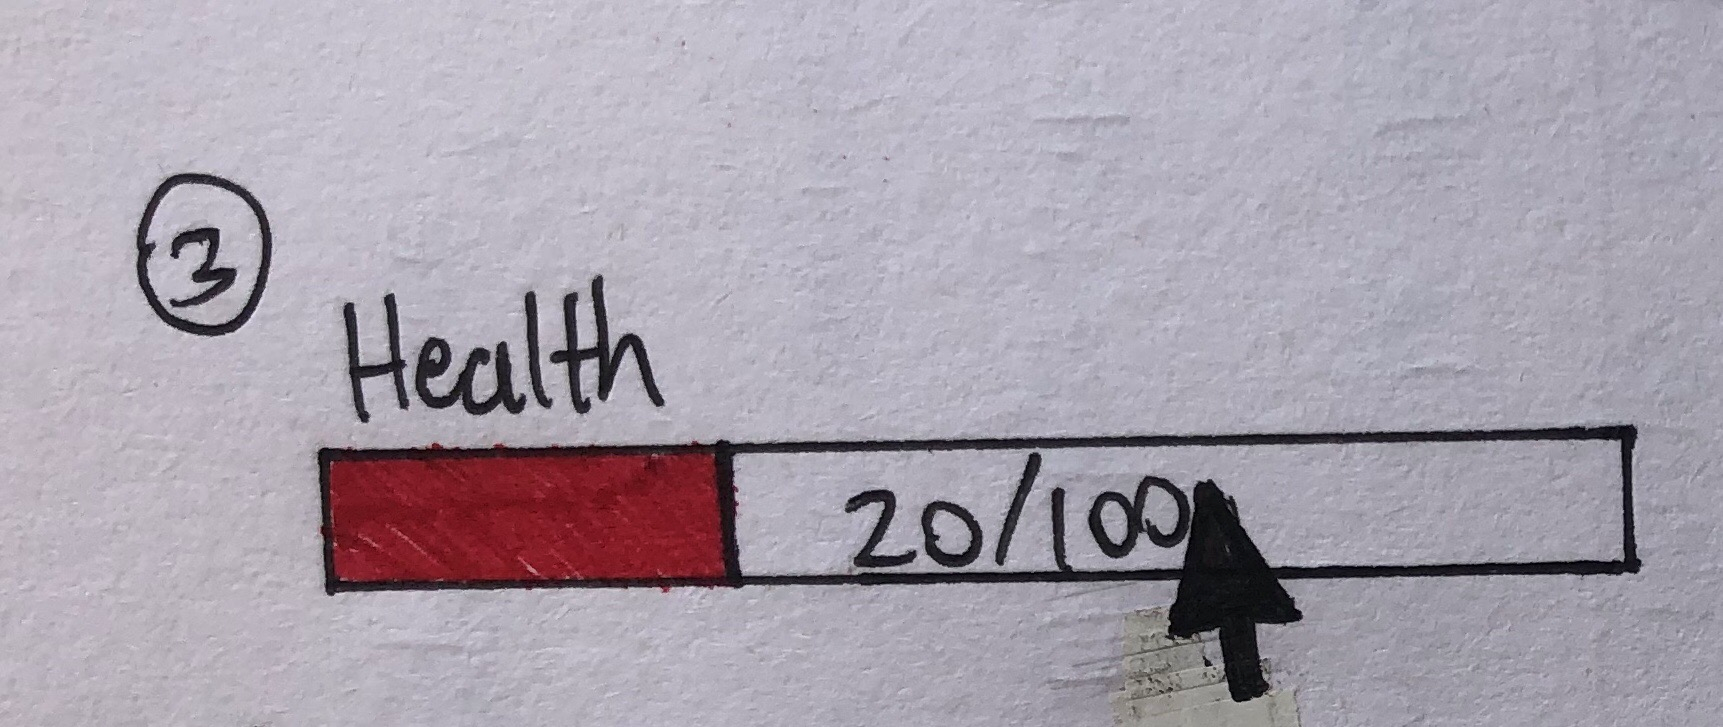 3
Health
20/100